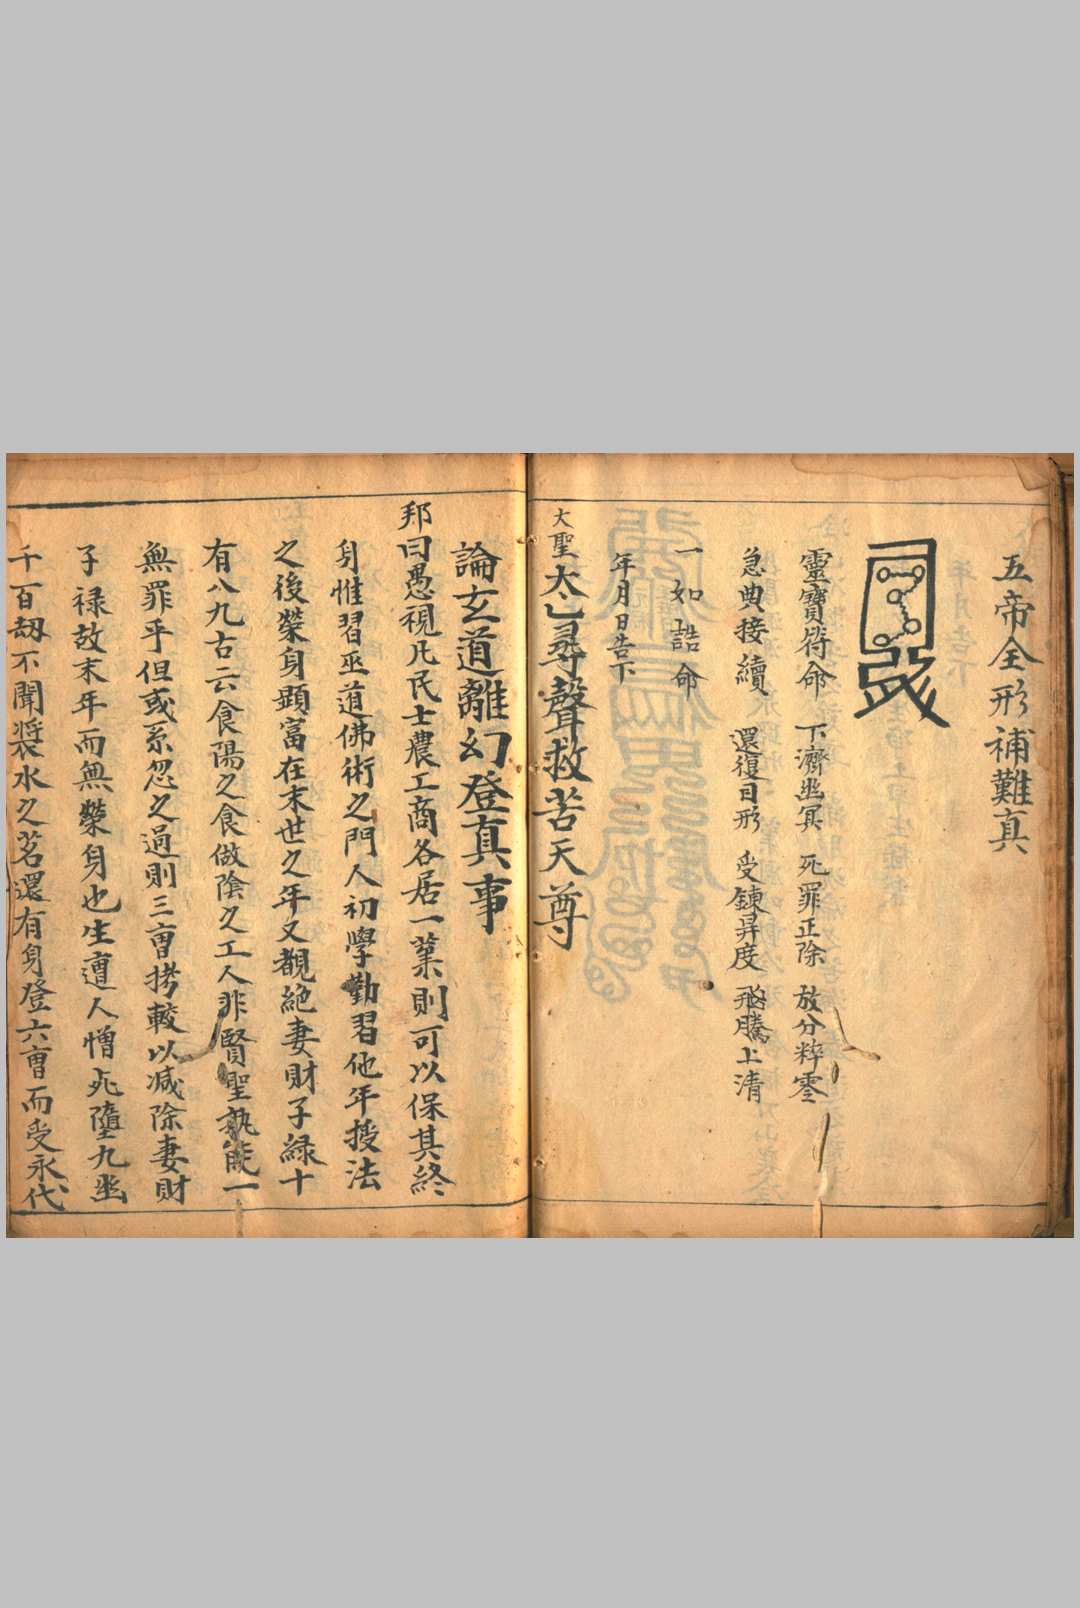 五帝全形補難真
靈寶符命 下濟幽冥 死罪正除 放分粹零
急典接續 還復目形 受鍊昇度 飛騰上清
一如誥命
年月日告下
大聖太乙尋聲救苦天尊
論玄道離幻登真事
邦曰愚視凡民士農工商各居一業則可以保其終
身惟習巫道佛術之門人初學勤習他年授法
之後榮身顕富在末世之年又覩絶妻財子緑十
有八九古云食陽之食做陰之工人非賢聖孰能一
無罪乎但或系忽之過則三曹拷較以减除妻財
子禄故末年而無榮身也生遭人憎死墮九幽
千百刼不聞漿水之茗還有身登六曹而受永代